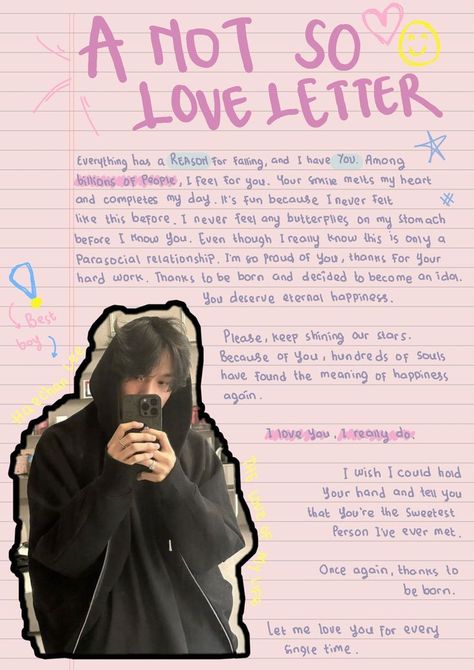 A NOT SO
LOVE LETTER
Everything has a REASON for falling, and I have YOU. Among
billions of people, I feel for you. Your smile melts my heart
and completes my day. It's fun because I never felt
like this before. I never feel any butterflies on my stomach
before I know you. Even though I really know this is only a
Parasocial relationship. I'm so proud of you, thanks for your
hard work. Thanks to be born and decided to become an idol.
You deserve eternal happiness.
Best
boy
Haechan Lee
Please, keep shining our stars.
Because of you, hundreds of souls
have found the meaning of happiness
again.
I love you, I really do.
The love of my life
I wish I could hold
your hand and tell you
that you're the sweetest
Person I've ever met.
Once again, thanks to
be born.
Let me love you for every
single time.